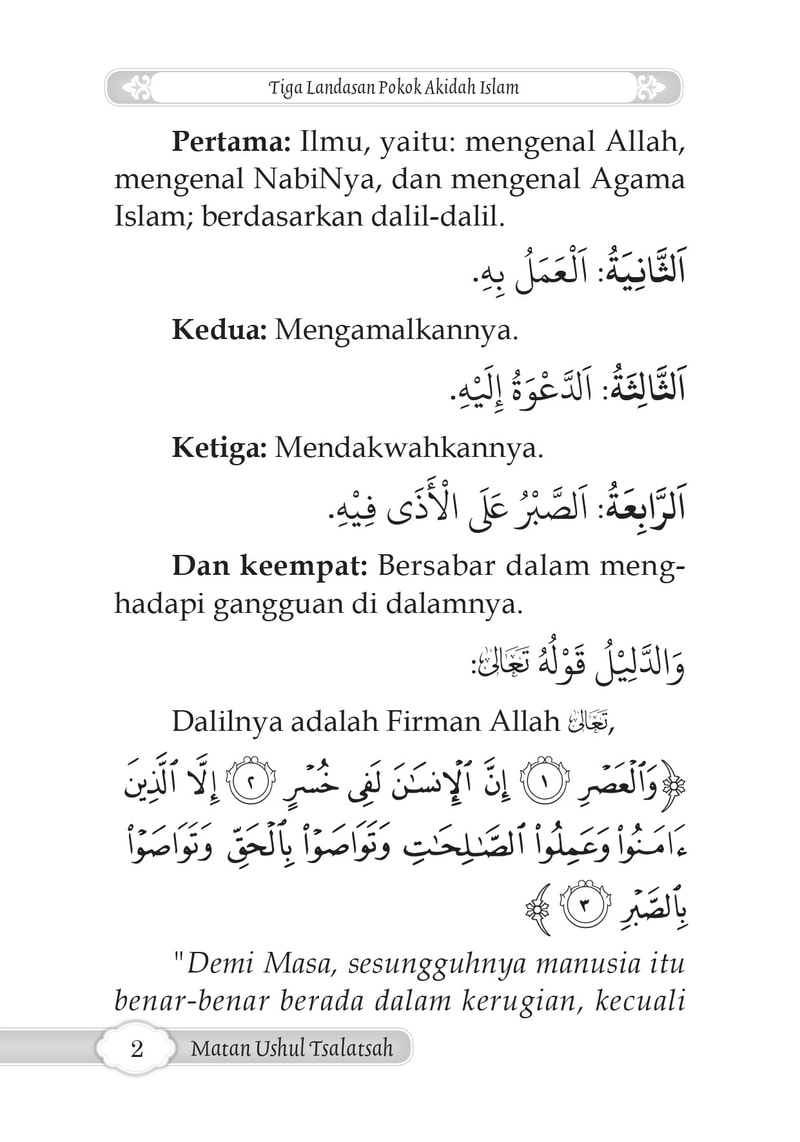 Tiga Landasan Pokok Akidah Islam
Pertama: Ilmu, yaitu: mengenal Allah,
mengenal NabiNya, dan mengenal Agama
Islam; berdasarkan dalil-dalil.
اَلثَّانِيَةُ: اَلْعَمَلُ بِهِ.
Kedua: Mengamalkannya.
اَلثَّالِثَةُ: اَلدَّعْوَةُ إِلَيْهِ.
Ketiga: Mendakwahkannya.
اَلرَّابِعَةُ: اَلصَّبْرُ عَلَى الْأَذَى فِيْهِ.
Dan keempat: Bersabar dalam meng-
hadapi gangguan di dalamnya.
وَالدَّلِيْلُ قَوْلُهُ تَعَالَىٰ:
Dalilnya adalah Firman Allah تَعَالَىٰ,
﴿وَٱلْعَصْرِ ١ إِنَّ ٱلْإِنسَـٰنَ لَفِى خُسْرٍ ٢ إِلَّا ٱلَّذِينَ
ءَامَنُوا۟ وَعَمِلُوا۟ ٱلصَّـٰلِحَـٰتِ وَتَوَاصَوْا۟ بِٱلْحَقِّ وَتَوَاصَوْا۟
بِٱلصَّبْرِ ٣﴾
"Demi Masa, sesungguhnya manusia itu
benar-benar berada dalam kerugian, kecuali
2 Matan Ushul Tsalatsah